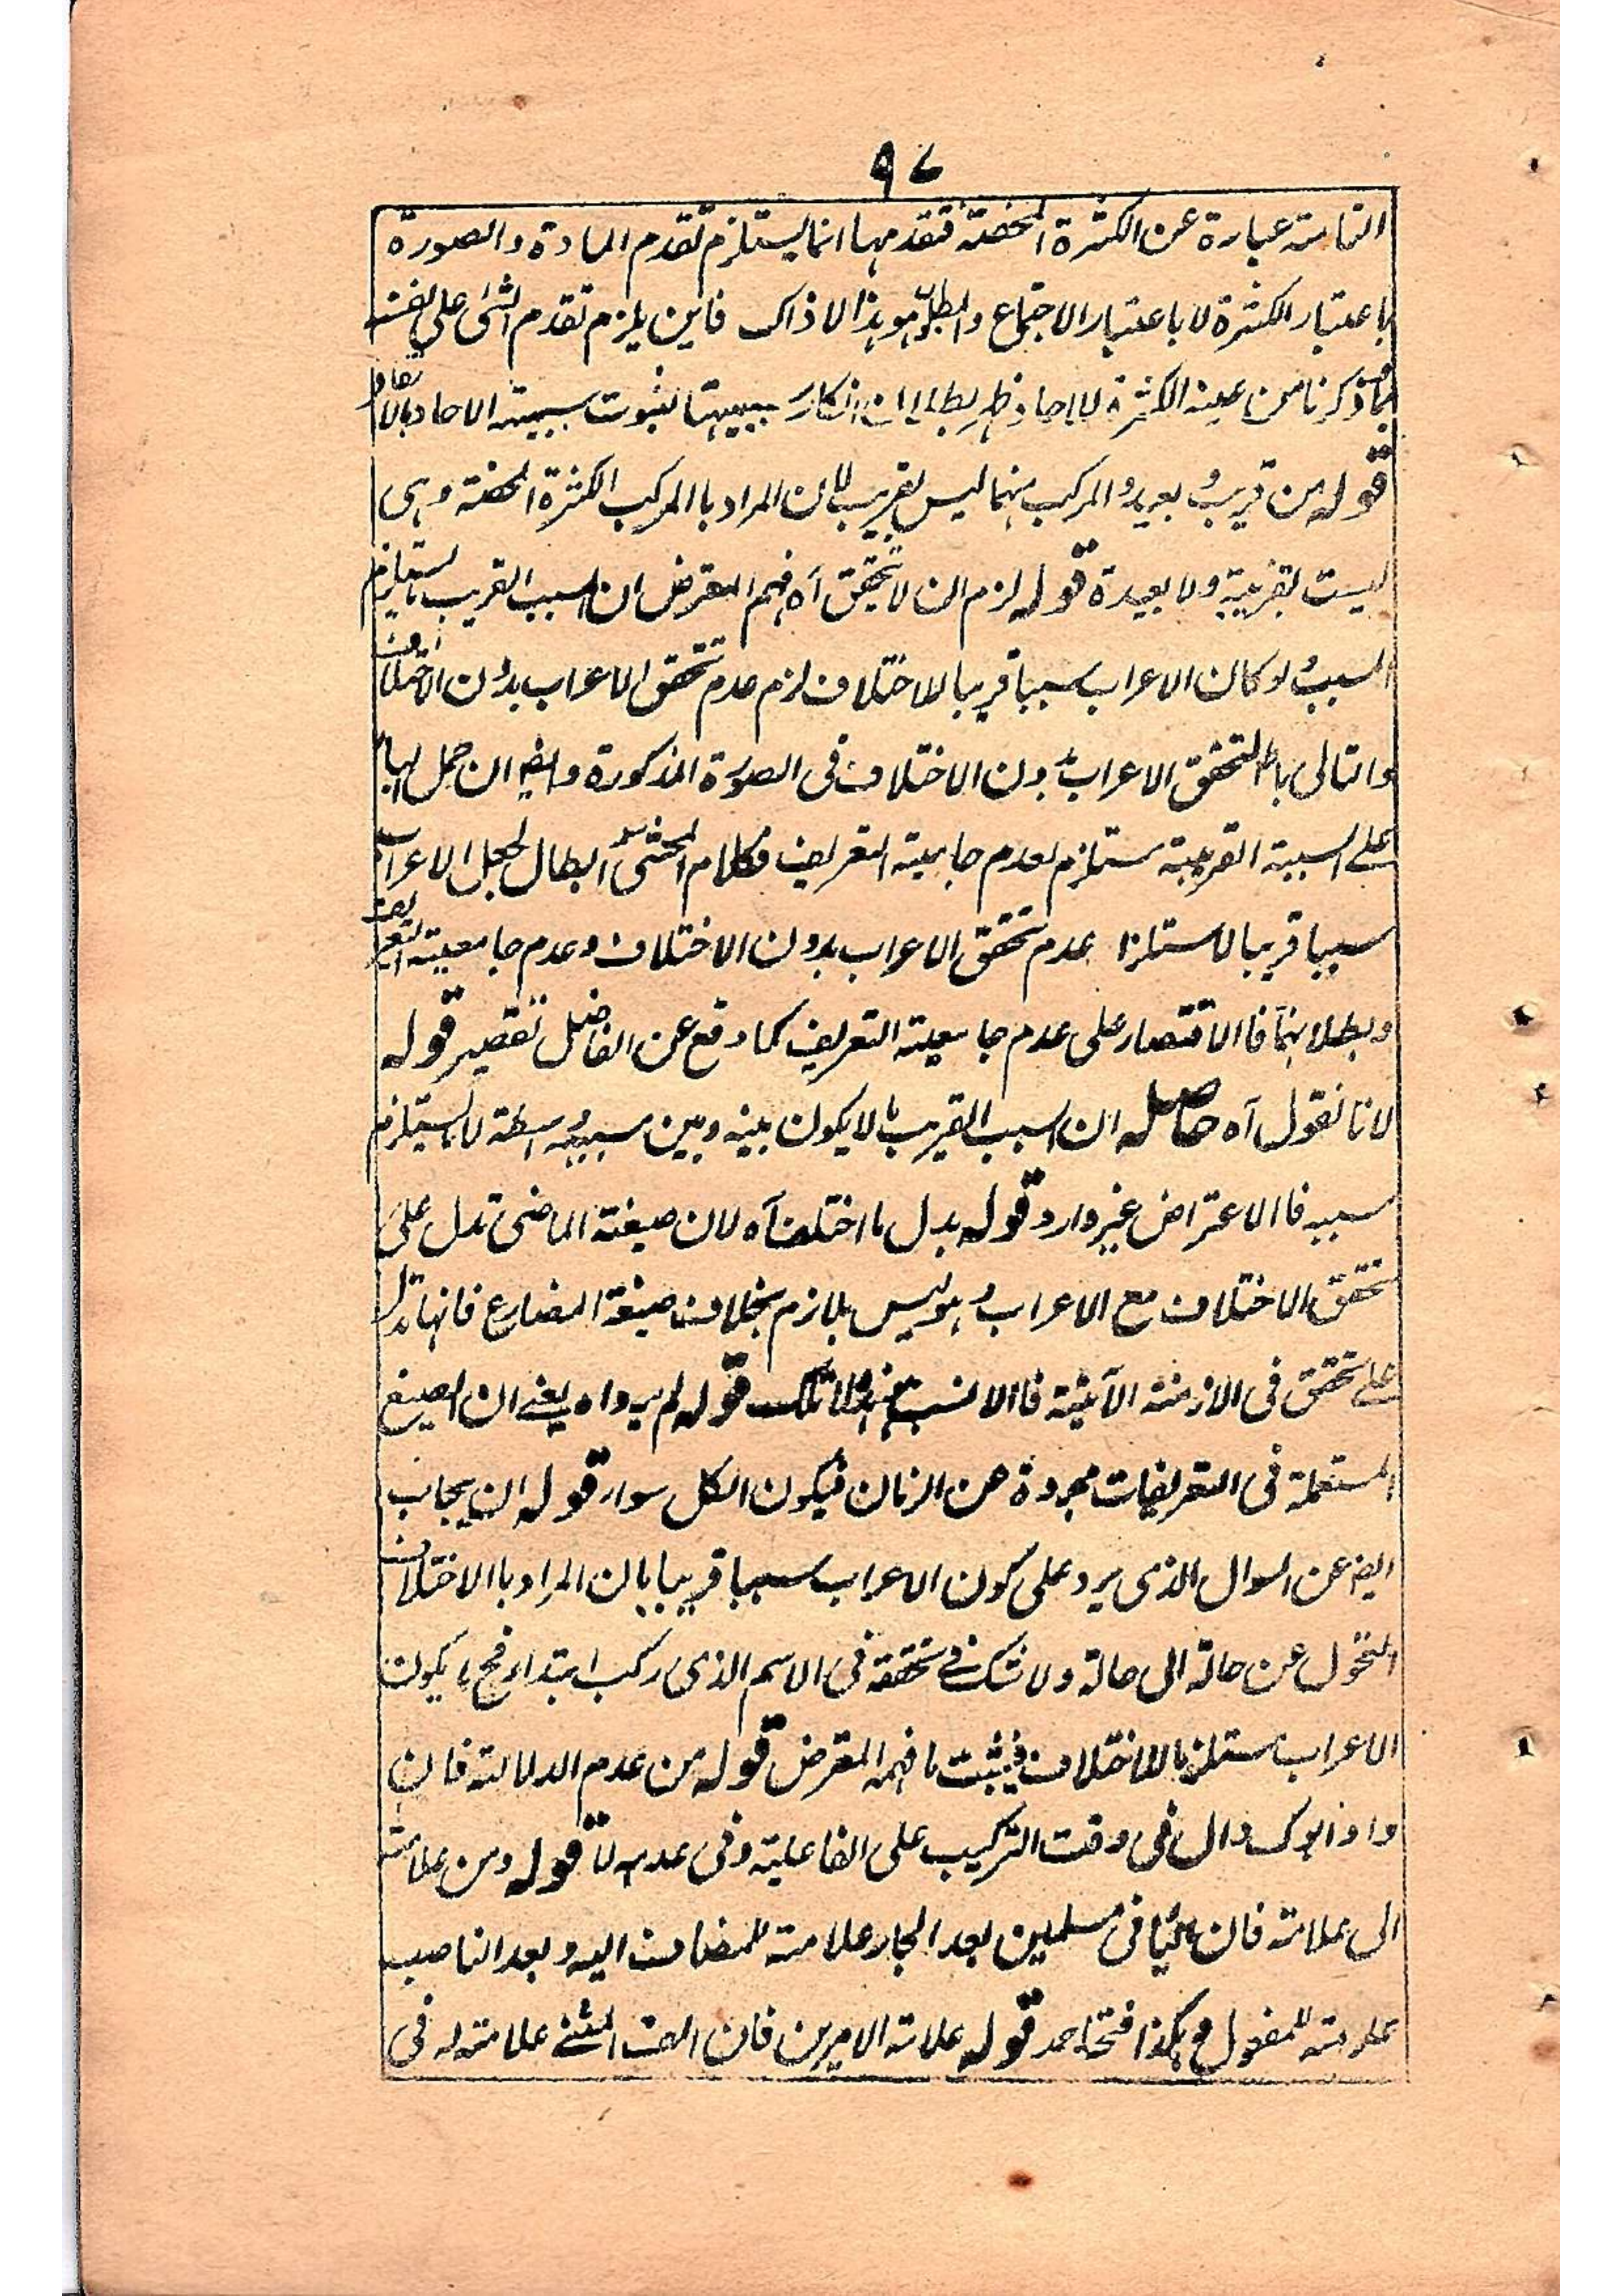 ٩٧
التامة عبارة عن الكثرة المحضة فتقدمها انما يستلزم تقدم المادة والصورة
باعتبار الكثرة لا باعتبار الاجتماع والمطلوب هو هذا لا ذاك فاين يلزم تقدم الشئ على نفسه
فما ذكرنا من عينه الكثرة للاحاد ظهر بطلان انكار سببيتها لثبوت سببية الاحاد بالاتفاق
قوله من قريب وبعيد والمركب منهما ليس بقريب لان المراد بالمركب الكثرة المحضة وهى
ليست بقريبة ولا بعيدة قوله لزم ان لا تتحقق آه فهم المعترض ان السبب القريب ما يستلزم
المسبب ولو كان الاعراب سببا قريبا للاختلاف لزم عدم تحقق الاعراب بدون الاختلاف
والتالى باطل لتحقق الاعراب بدون الاختلاف فى الصورة المذكورة وايضا ان حمل الباء
على السببية القريبة مستلزم لعدم جامعية التعريف فكلام المحشى ابطال لجعل الاعراب
سببا قريبا لاستلزام عدم تحقق الاعراب بدون الاختلاف وعدم جامعية التعريف
وبطلانهما فالاقتصار على عدم جامعية التعريف كما وقع عن الفاضل تقصير قوله
لانا نقول آه حاصله ان السبب القريب ما لا يكون بينه وبين مسببه واسطة لا ما يستلزم
مسببه فالاعتراض غير وارد قوله بدل ما اختلف آه لان صيغة الماضى تدل على
تحقق الاختلاف مع الاعراب وهو ليس بلازم بخلاف صيغة المضارع فانها تدل
على تحقق فى الازمنة الآتية فالانسب هذه لا تلك قوله لم يرد آه يعنى ان الصيغ
المستعملة فى التعريفات مجردة عن الزمان فيكون الكل سواء قوله ان يجاب
ايضا عن السوال الذى يرد على كون الاعراب سببا قريبا بان المراد بالاختلاف
التحول عن حالة الى حالة ولا شك فى تحققه فى الاسم الذى ركب ابتداء فح يكون
الاعراب مستلزما للاختلاف فيثبت ما فهمه المعترض قوله من عدم الدلالة فان
واو ابوك دال فى وقت التركيب على الفاعلية وفى عدمه لا قوله ومن علامة
الى علامة فان الياء فى مسلمين بعد الجار علامة للمضاف اليه وبعد الناصب
علامة للمفعول وهكذا فتحة احمد قوله علامة الامرين فان الف المثنى علامة له فى